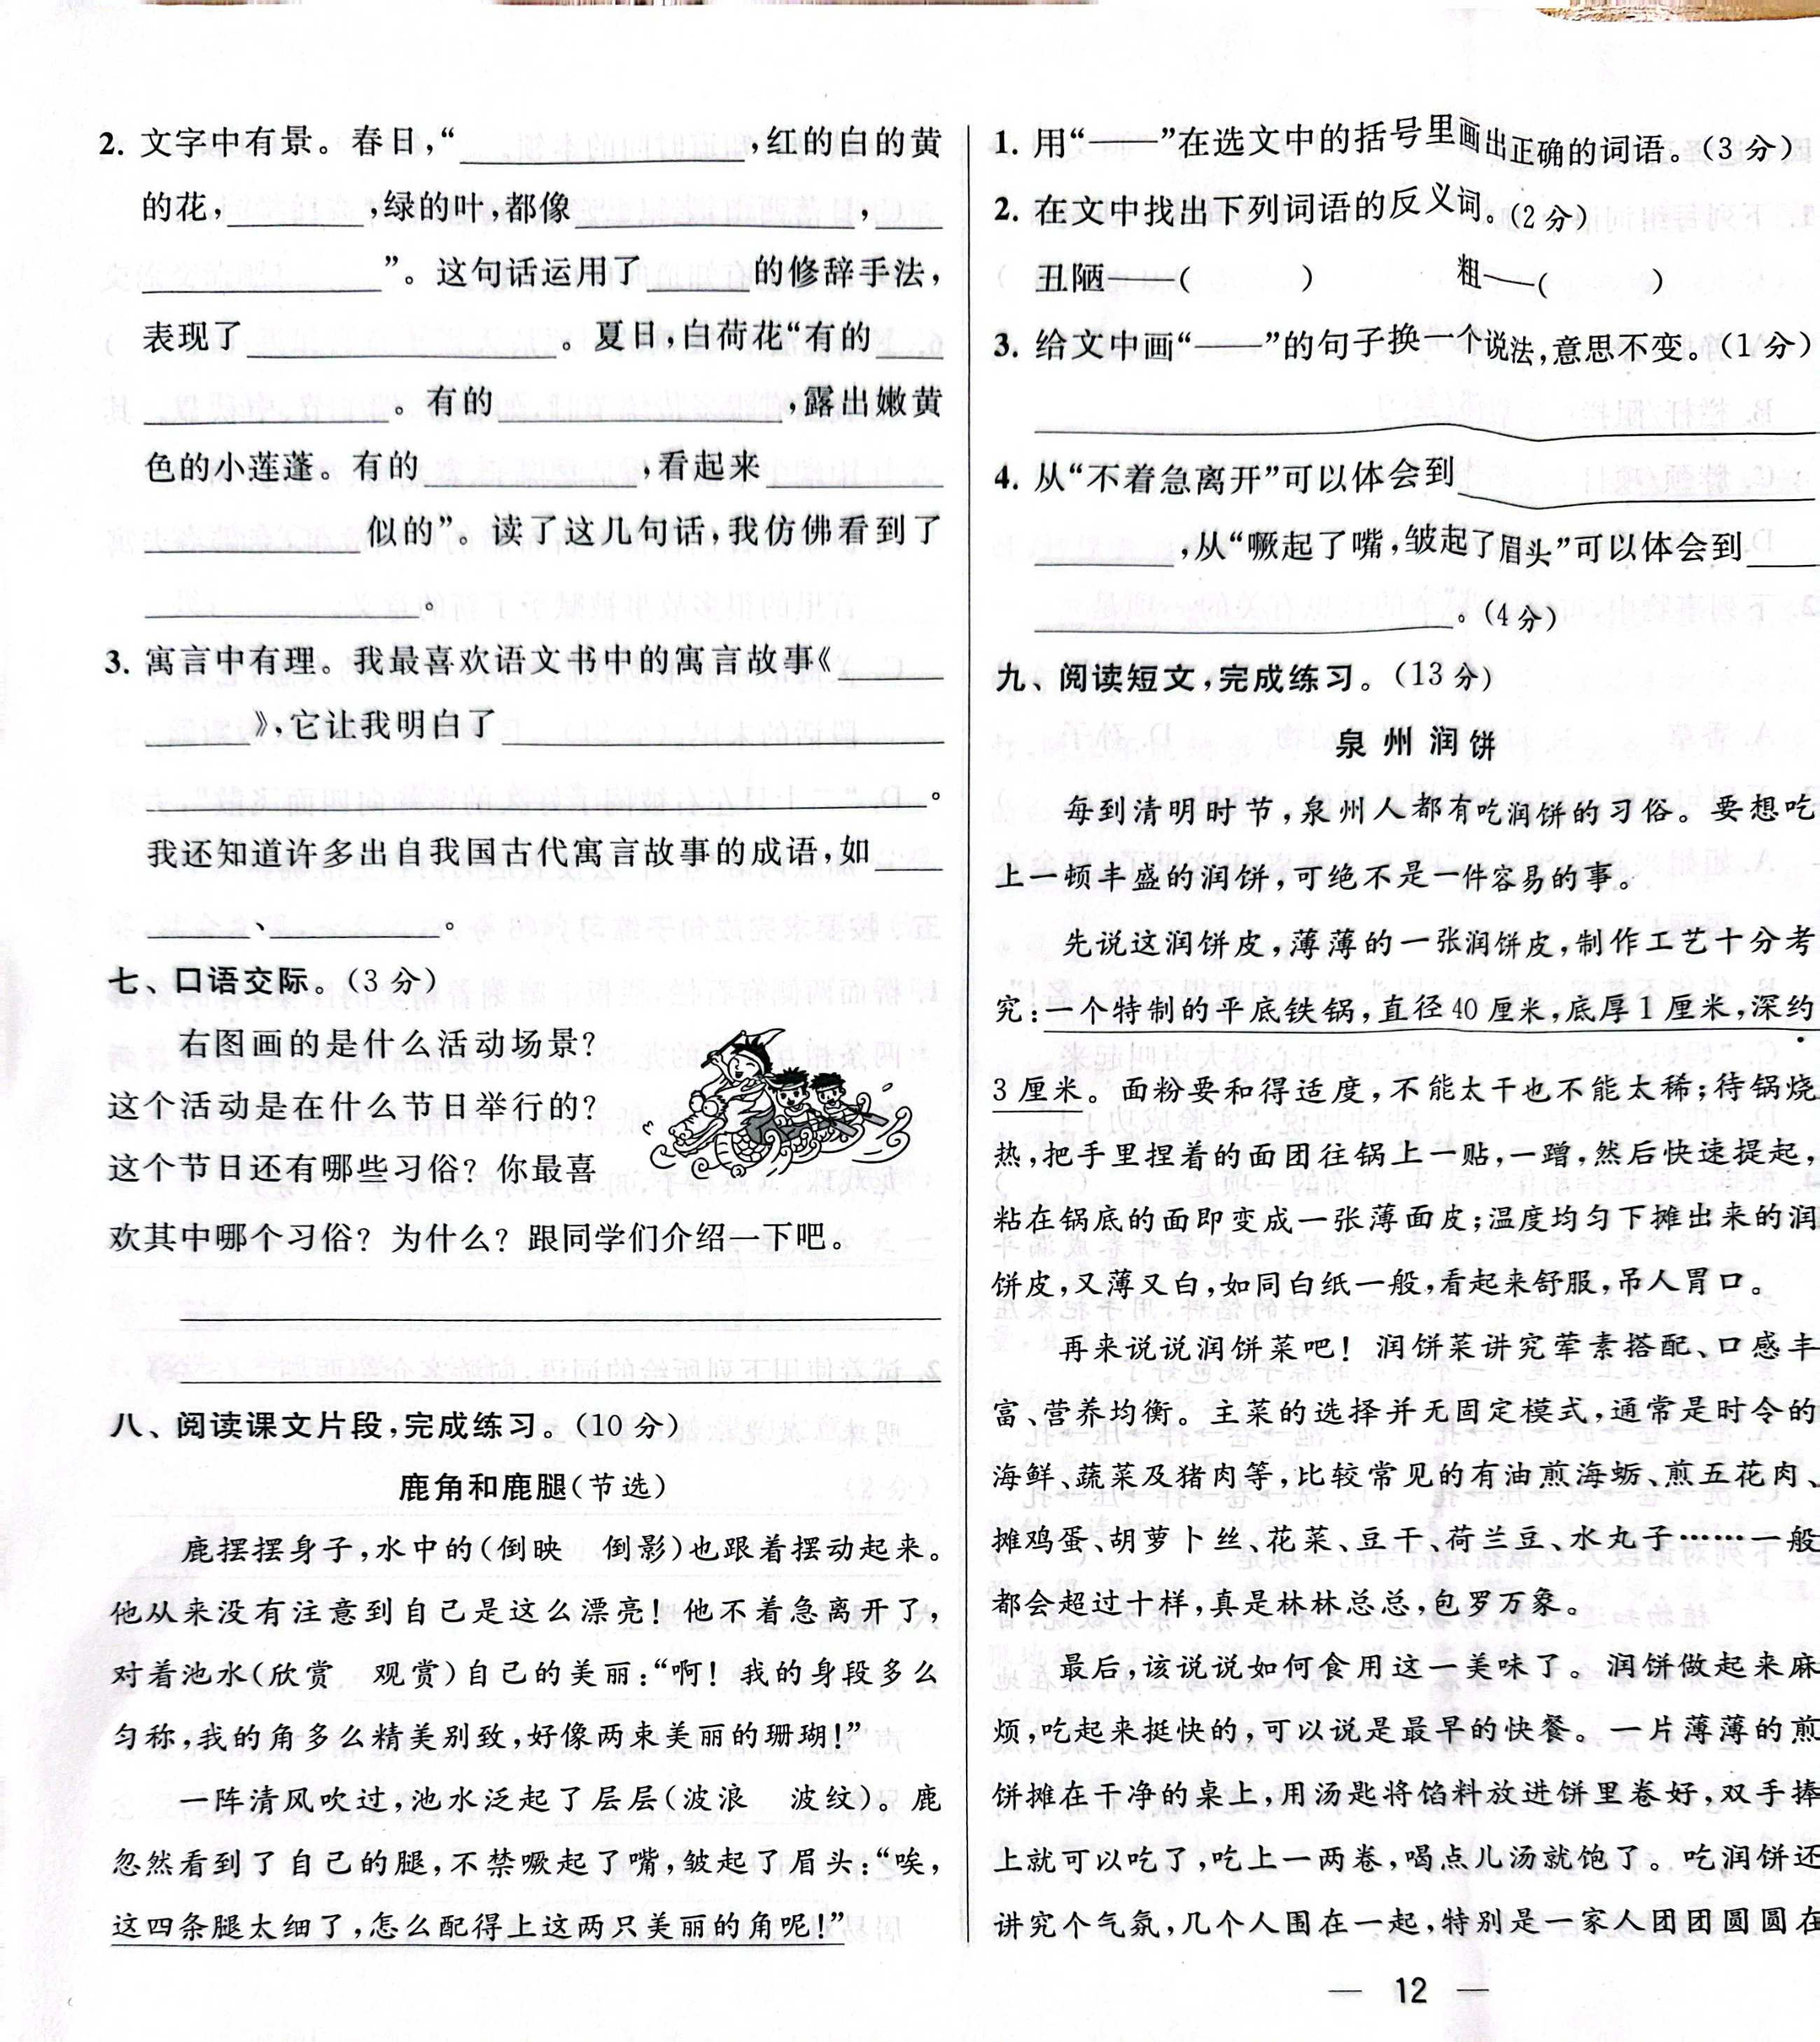 2. 文字中有景。春日,“________________,红的白的黄
的花,________,绿的叶,都像________________,____
______________”。这句话运用了______的修辞手法,
表现了__________________。夏日,白荷花“有的____
______________。有的________________,露出嫩黄
色的小莲蓬。有的____________,看起来__________
____________似的”。读了这几句话,我仿佛看到了
________________。
3. 寓言中有理。我最喜欢语文书中的寓言故事《______
______》,它让我明白了__________________________
______________________________________________。
我还知道许多出自我国古代寓言故事的成语,如____
______、__________。
七、口语交际。(3分)
右图画的是什么活动场景?
这个活动是在什么节日举行的?
这个节日还有哪些习俗? 你最喜
欢其中哪个习俗? 为什么? 跟同学们介绍一下吧。
八、阅读课文片段,完成练习。(10分)
鹿角和鹿腿(节选)
鹿摆摆身子,水中的(倒映 倒影)也跟着摆动起来。
他从来没有注意到自己是这么漂亮! 他不着急离开了,
对着池水(欣赏 观赏)自己的美丽:“啊! 我的身段多么
匀称,我的角多么精美别致,好像两束美丽的珊瑚!”
一阵清风吹过,池水泛起了层层(波浪 波纹)。鹿
忽然看到了自己的腿,不禁噘起了嘴,皱起了眉头:“唉,
这四条腿太细了,怎么配得上这两只美丽的角呢!”
1. 用“——”在选文中的括号里画出正确的词语。(3分)
2. 在文中找出下列词语的反义词。(2分)
丑陋——( ) 粗——( )
3. 给文中画“——”的句子换一个说法,意思不变。(1分)
4. 从“不着急离开”可以体会到____________________
________,从“噘起了嘴,皱起了眉头”可以体会到____
________________________。(4分)
九、阅读短文,完成练习。(13分)
泉州润饼
每到清明时节,泉州人都有吃润饼的习俗。要想吃
上一顿丰盛的润饼,可绝不是一件容易的事。
先说这润饼皮,薄薄的一张润饼皮,制作工艺十分考
究:一个特制的平底铁锅,直径40厘米,底厚1厘米,深约
3厘米。面粉要和得适度,不能太干也不能太稀;待锅烧
热,把手里捏着的面团往锅上一贴,一蹭,然后快速提起,
粘在锅底的面即变成一张薄面皮;温度均匀下摊出来的润
饼皮,又薄又白,如同白纸一般,看起来舒服,吊人胃口。
再来说说润饼菜吧! 润饼菜讲究荤素搭配、口感丰
富、营养均衡。主菜的选择并无固定模式,通常是时令的
海鲜、蔬菜及猪肉等,比较常见的有油煎海蛎、煎五花肉、
摊鸡蛋、胡萝卜丝、花菜、豆干、荷兰豆、水丸子……一般
都会超过十样,真是林林总总,包罗万象。
最后,该说说如何食用这一美味了。润饼做起来麻
烦,吃起来挺快的,可以说是最早的快餐。一片薄薄的煎
饼摊在干净的桌上,用汤匙将馅料放进饼里卷好,双手捧
上就可以吃了,吃上一两卷,喝点儿汤就饱了。吃润饼还
讲究个气氛,几个人围在一起,特别是一家人团团圆圆在
— 12 —